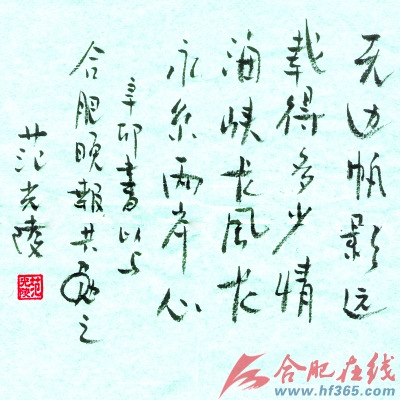 无边帆影远
载得多少情
海峡长风长
永系兩岸心
辛卯書以与
合肥晚報共勉之
范光陵
合肥在线
www.hf365.com